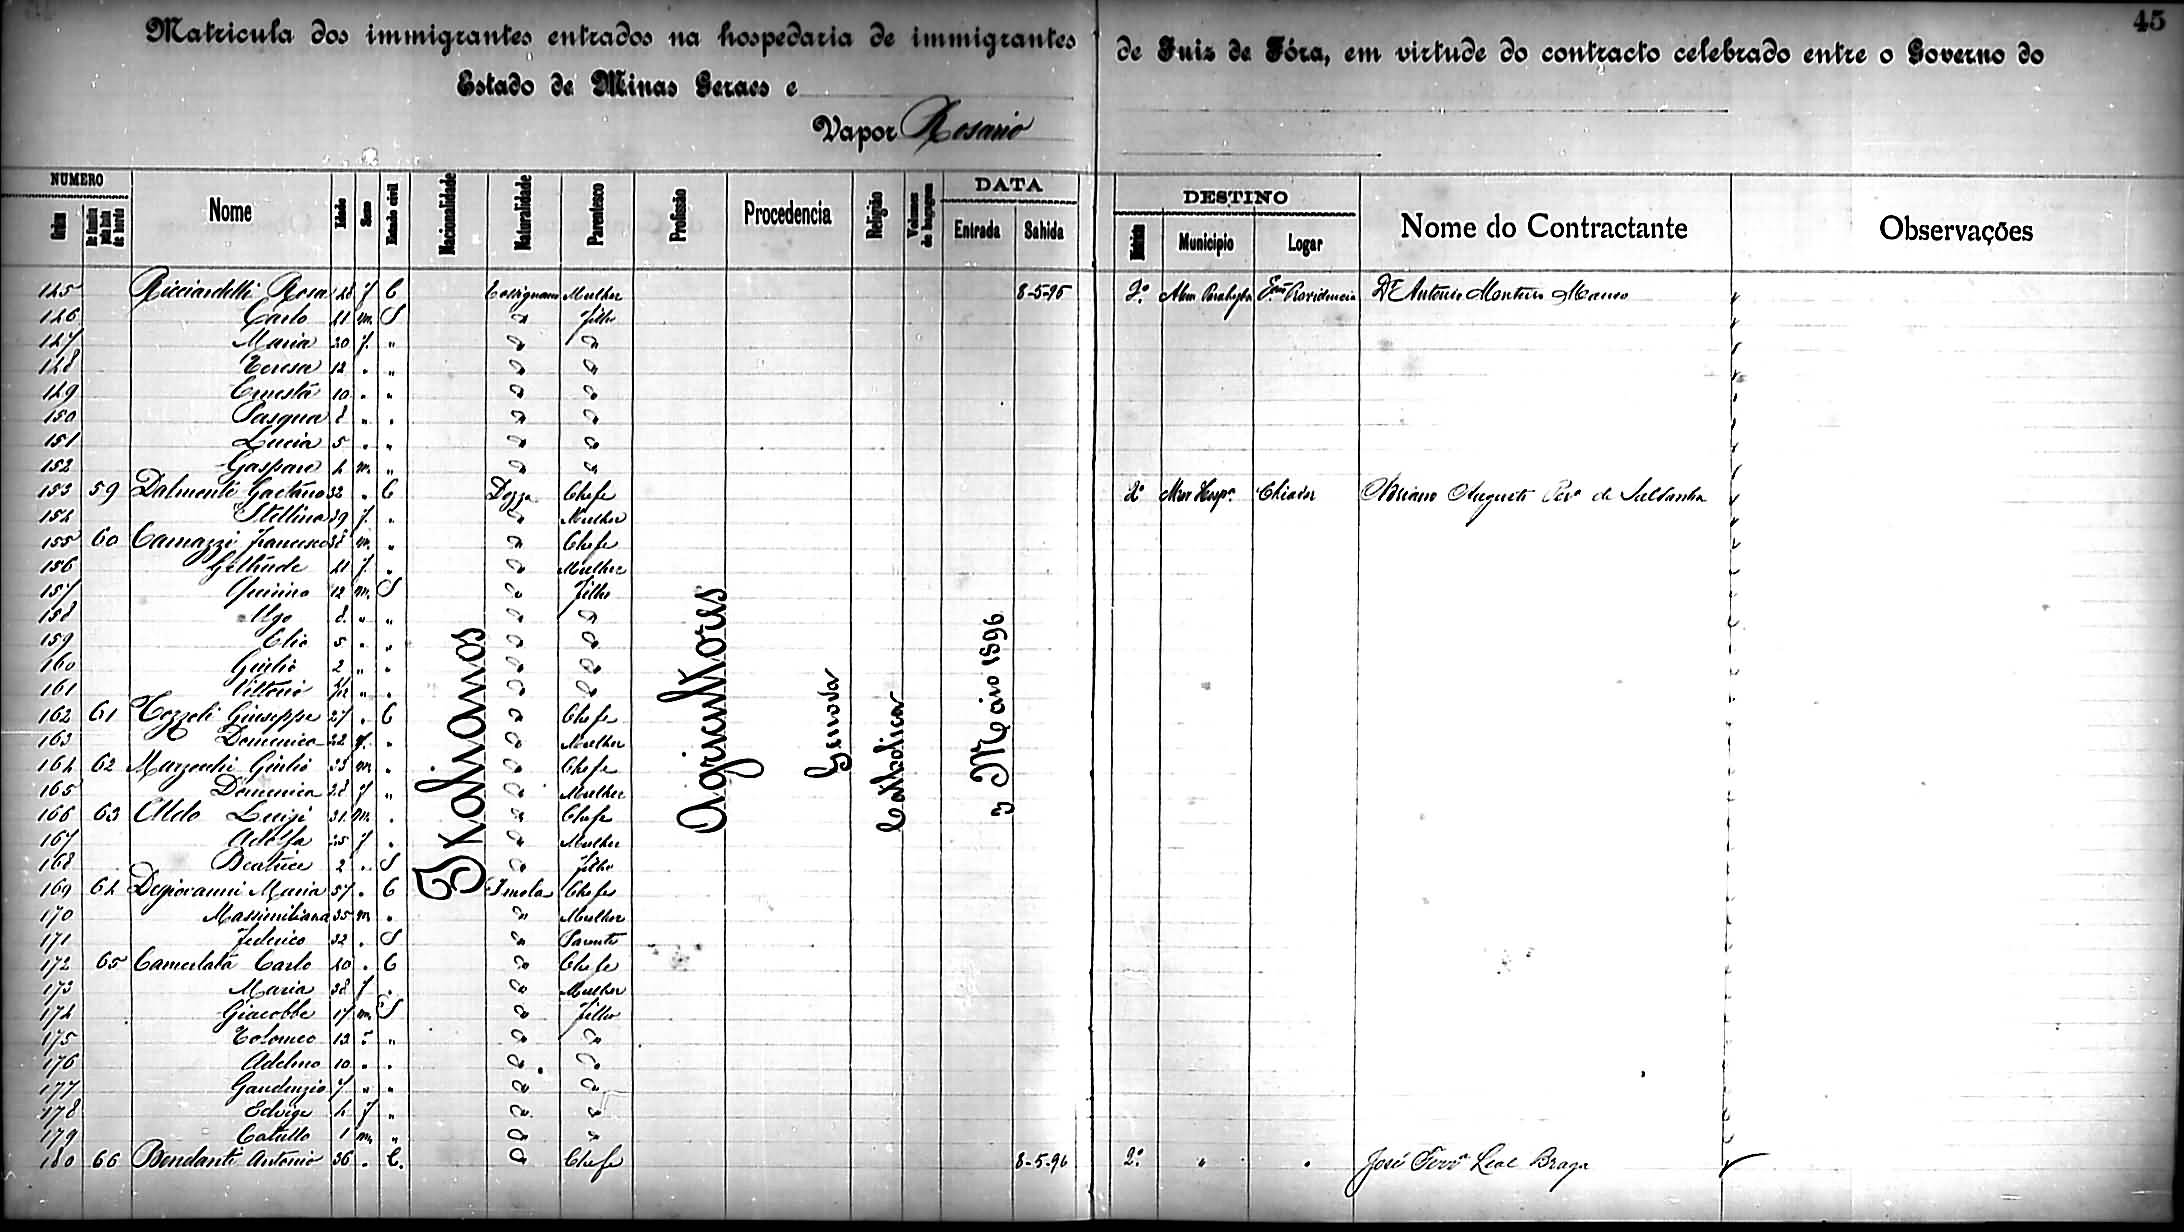 45
Matricula dos immigrantes entrados na hospedaria de immigrantes de Juiz de Fóra, em virtude do contracto celebrado entre o Governo do
Estado de Minas Geraes e
Vapor Rosario
NUMERO DATA DESTINO
Ordem Nome Idade Sexo Estado civil Nacionalidade Naturalidade Parentesco Profissão Procedencia Religião Volumes de bagagem Entrada Sahida Municipio Logar Nome do Contractante Observações
145 Ricciardelli Rosa 48 f C Mulher 8-5-96 2º Alem Parahyba Providencia Dr Antonio Monteiro
146 Carlo 21 m. S " Filho
147 Maria 20 f. " " "
148 Teresa 12 " " " "
149 Ernesta 10 " " " "
150 Pasqua 8 " " " "
151 Lucia 5 " " " "
152 Gaspare 4 m. " " "
153 59 Dalmonti Gaetano 32 " C Dozza Chefe 2º Mar Hespª Chiador Augusto de Saldanha
154 Stellina 39 f. " " Mulher
155 60 Camazzi Francesco 38 m. " " Chefe
156 Geltrude 41 f. " " Mulher
157 Quirino 12 m. S " Filho
158 Ugo 8 " " " "
159 Elio 5 " " " "
160 Giulio 2 " " " "
161 Vittorio " " " "
162 61 Giuseppe 27 " C " Chefe
163 Domenica 22 f. " " Mulher
164 62 Giulio 33 m " " Chefe
165 Domenica 28 f " " Mulher
166 63 Luigi 31 m. " " Chefe
167 Adolfa 25 f " " Mulher
168 Beatrice 2 " S " Filho
169 64 Degiovanni Maria 57 " C Imola Chefe
170 Massimiliana 35 m " " Mulher
171 Federico 32 " S " Parente
172 65 Camerlata Carlo 40 " C " Chefe
173 Maria 38 f " " Mulher
174 Giacobbe 17 m S " Filho
175 Tolomeo 13 " " " "
176 Adelmo 10 " " " "
177 Gaudenzio 7 " " " "
178 Edvige 4 f " " "
179 Catullo 1 m. " " "
180 66 Bendanti Antonio 36 " C. " Chefe 8-5-96 2º " " José Ferrª Leal Braga
Italianos
Agricultores
Genova
Catholica
3 Maio 1896